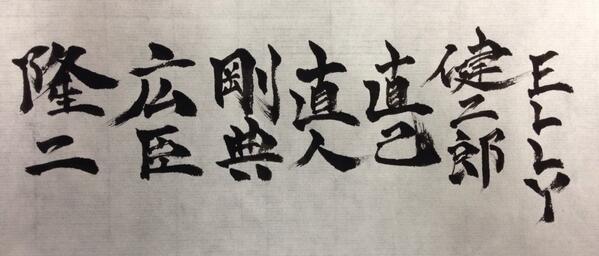 ELLY
健二郎
直己
直人
剛典
広臣
隆二